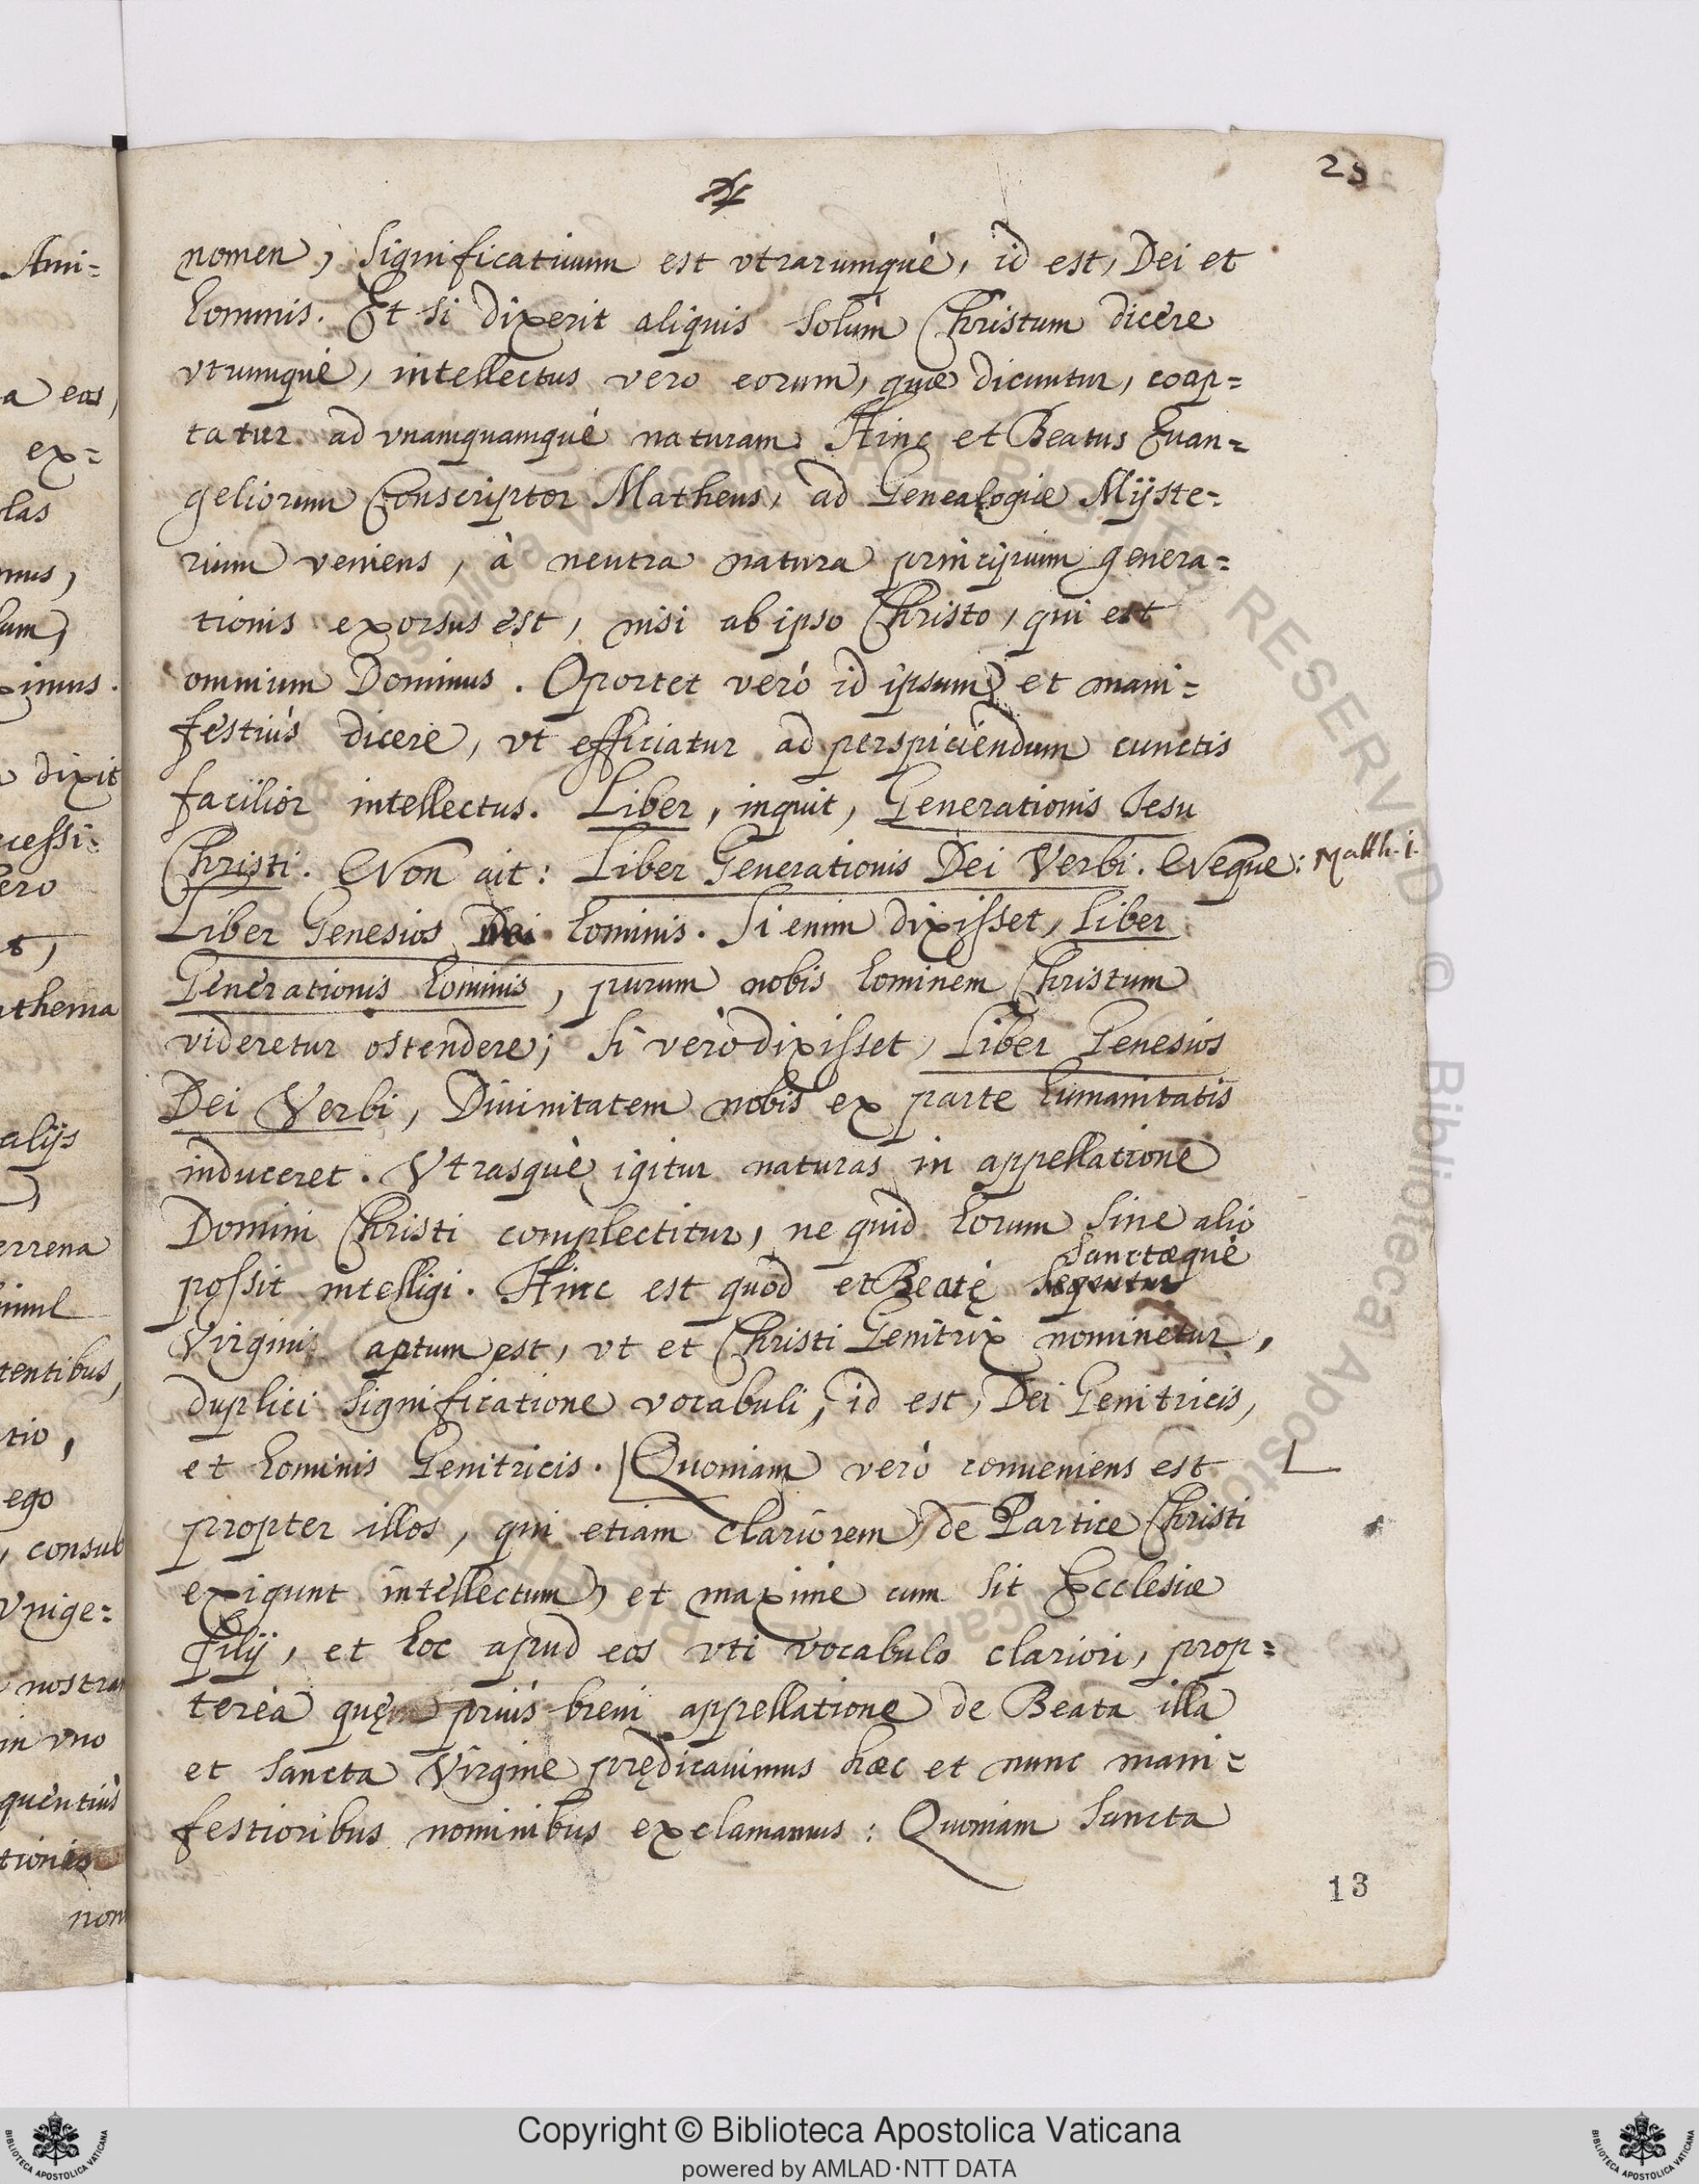 25
nomen, significatiuum est vtrarumquè, id est, Dei et
hominis. Et si dixerit aliquis solùm Christum dicere
vtrumquè, intellectus vero eorum, quæ dicuntur, coap=
tatur ad vnamquamquè naturam. Hinc et Beatus Euan=
geliorum Conscriptor Matheus, ad Genealogiæ Mÿste=
rium veniens, à neutra natura principium genera=
tionis exorsus est, nisi ab ipso Christo, qui est
omnium Dominus. Oportet verò id ipsum, et mani=
festiùs dicere, vt efficiatur ad perspiciendum cunctis
facilior intellectus. Liber, inquit, Generationis Jesu
Christi. Non ait: Liber Generationis Dei Verbi. Neque: Matth. i.
Liber Genesios hominis. Si enim dixisset, Liber
Generationis hominis, purum nobis hominem Christum
videretur ostendere; si verò dixisset, Liber Genesios
Dei Verbi, Diuinitatem nobis ex parte humanitatis
induceret. Vtrasquè igitur naturas in appellatione
Domini Christi complectitur, ne quid horum sine alio
possit intelligi. Hinc est quod et Beatę Sanctæquè
Virgini aptum est, vt et Christi Genitrix nominetur,
duplici significatione vocabuli, id est, Dei Genitricis,
et hominis Genitricis. Quoniam verò conueniens est
propter illos, qui etiam clariorem de Partice Christi
exigunt intellectum, et maxime cum sit Ecclesiæ
filij, et hoc apud eos vti vocabulo clariori, prop=
tereà quę priùs breui appellatione de Beata illa
et sancta Virgine prędicauimus hæc et nunc mani=
festioribus nominibus exclamamus: Quoniam sancta
13
Ami=
a eos,
ex=
las
mus,
dixit
cessi=
ero
t,
thema
alijs
errena
simul
tentibus,
tio,
ego
, consub
Vnige=
nostra
in vno
quentiùs
tionis
nom
Copyright © Biblioteca Apostolica Vaticana
powered by AMLAD·NTT DATA